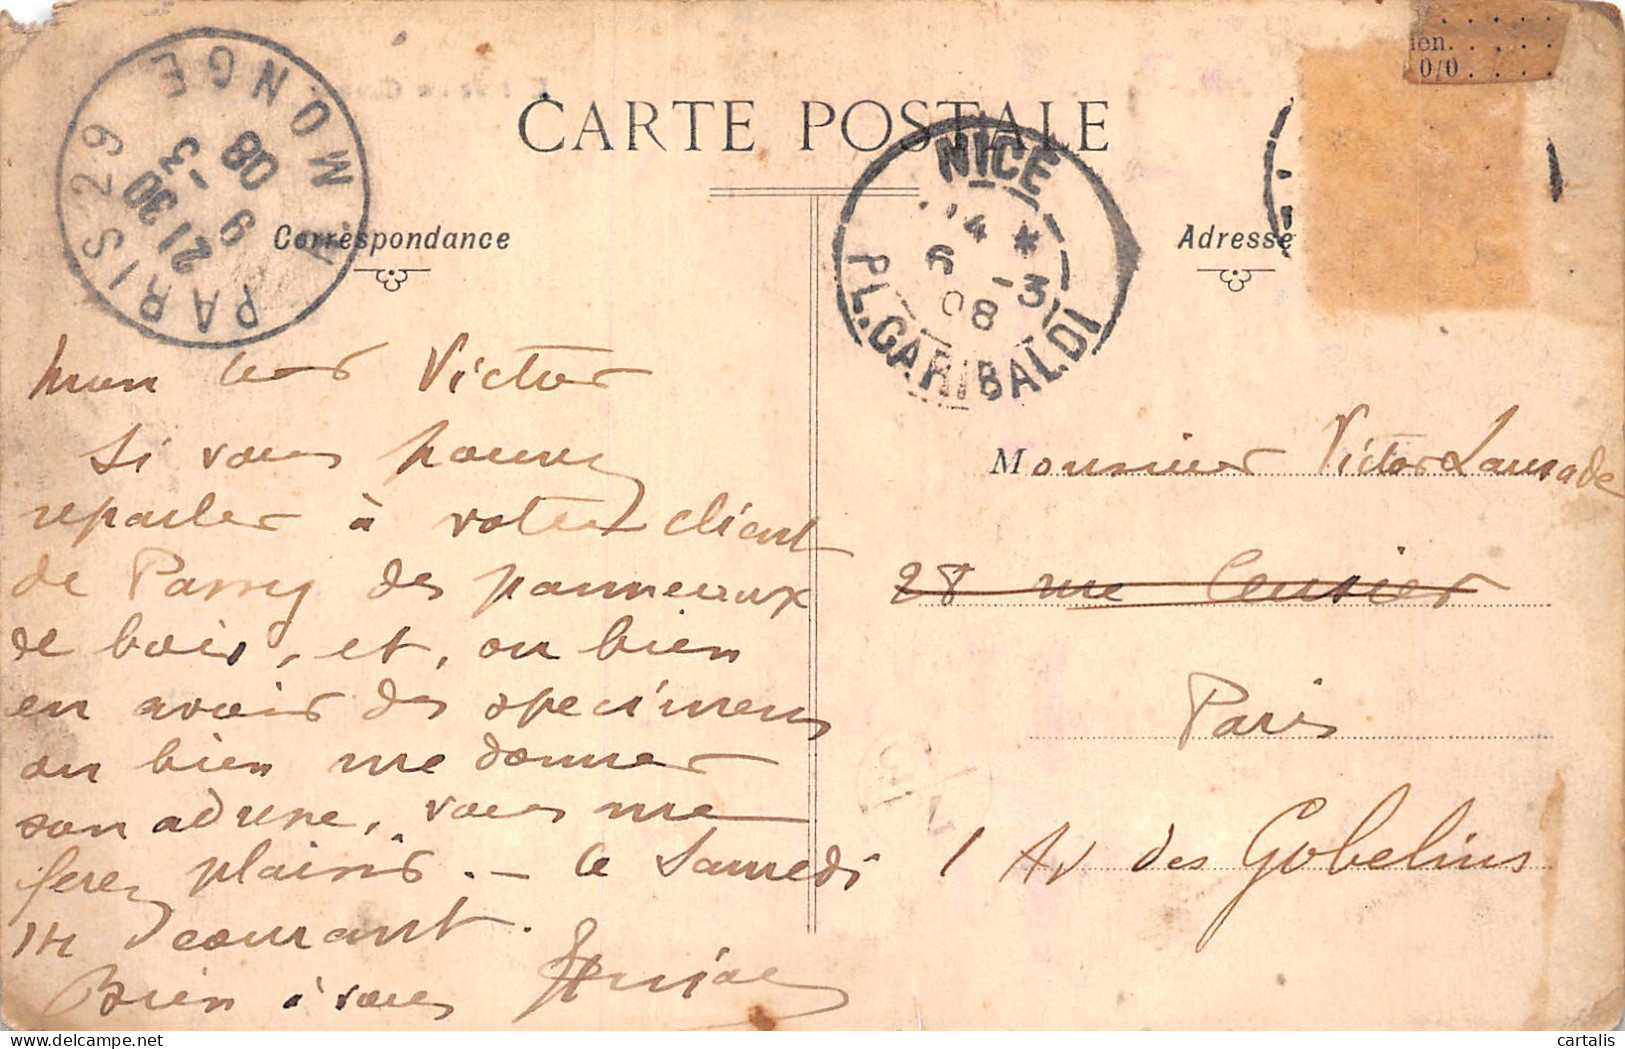 ien. . . . .
0/0 . . . .
CARTE POSTALE
PARIS 29 R. MONGE
21 30
9 - 3
08
NICE
14 *
6 - 3
08
PL. GARIBALDI
Correspondance
Adresse
mon cher Victor
Si vous pouvez
reparler à votre client
de Passy des panneaux
de bois, et, ou bien
en avoir des specimens
ou bien me donner
son adresse, vous me
ferez plaisir. — le Samedi
14 courant.
Bien à vous
Monsieur Victor Lausade
28 rue Censier
Paris
1 Av des Gobelins
cartalis
delcampe.net